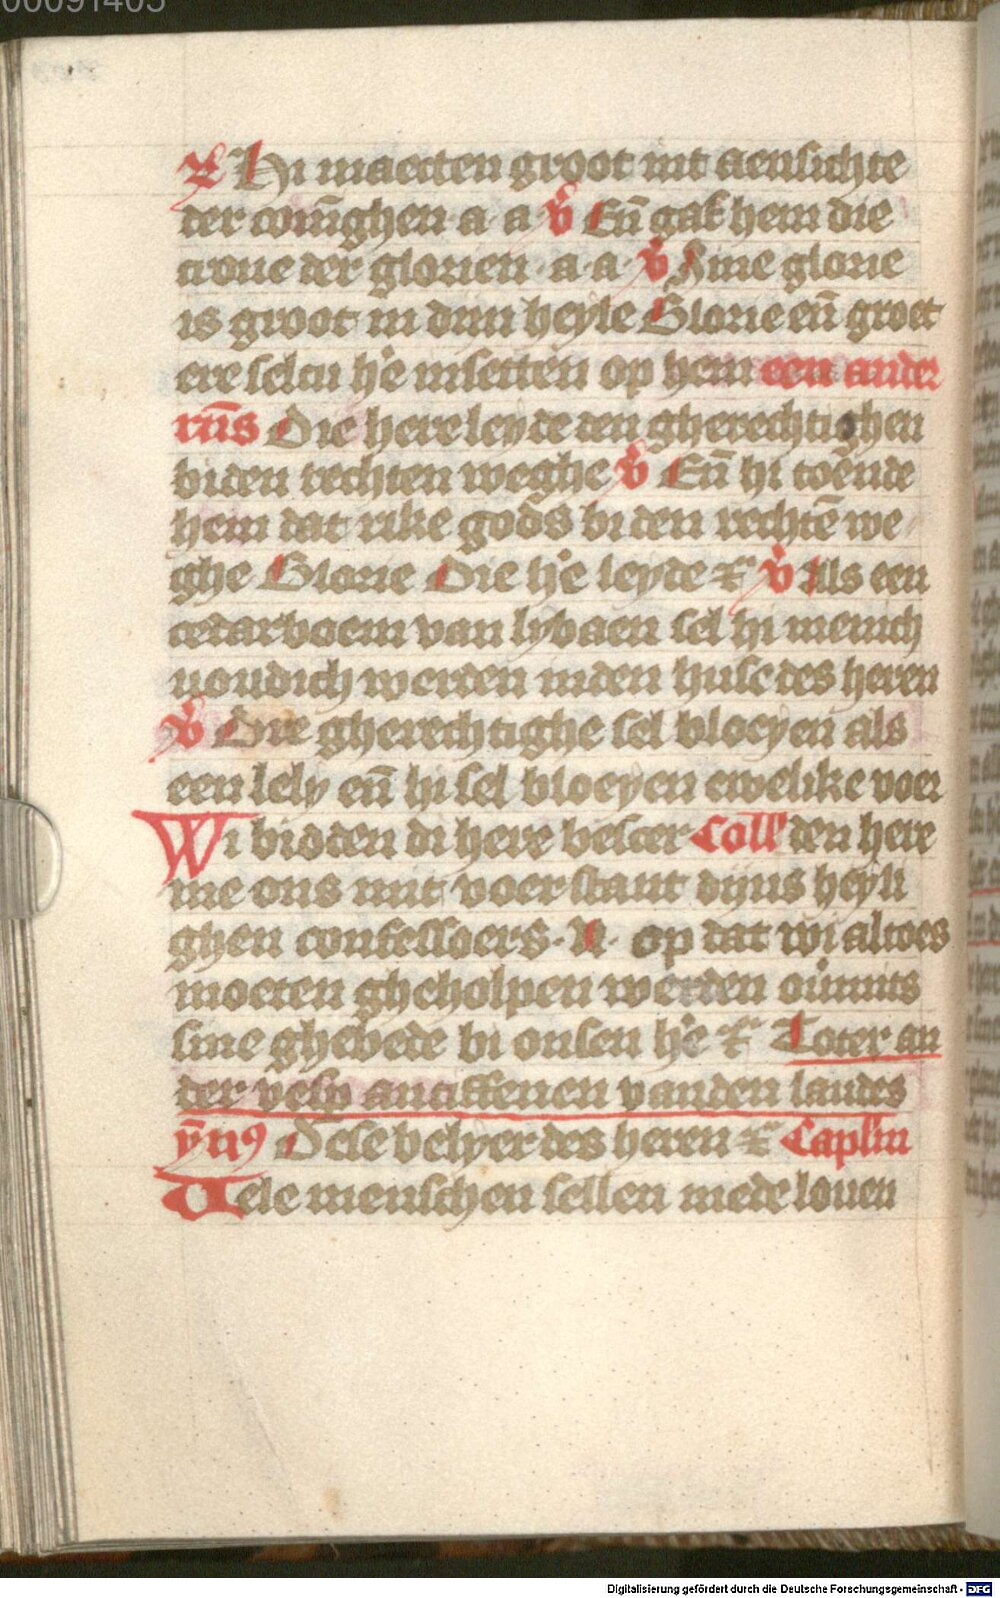 00091405
R Hi maecten groot int aensichte
der coni̅ghen · a · a v̊ En̅ gaf hem die
crone der glorien · a · a · v̊ Sine glorie
is groot in dijn heyle Glorie en̅ groet
ere selcu he̊ insetten op hem een ander
rn̅s Die here leyde den gherechtighen
bi den rechten weghe v̊ En̅ hi toe̅nde
hem dat rike gods bi den rechte̅ we
ghe Glorie Die he̊ leyde &c v̊ Als een
cedarboem van lybaen sel hi menich
voudich werden inden huse des heren
v̊ Die gherechtighe sel bloeyen als
een lely en̅ hi sel bloeyen ewelike voer
Wi bidden di here bescer Coll̅ den here
me ons mit voerstant dijns heyli
ghen confessoers · N · op dat wi altoes
moeten gheholpen werden ou̅mits
sine ghebede bi onsen he̊ &c Toter an
der vesp̅ antiffenen vanden laudes
ȳn9 Dese belyer des heren &c Caplm̅
Uele menschen sellen mede louen
Digitalisierung gefördert durch die Deutsche Forschungsgemeinschaft - DFG